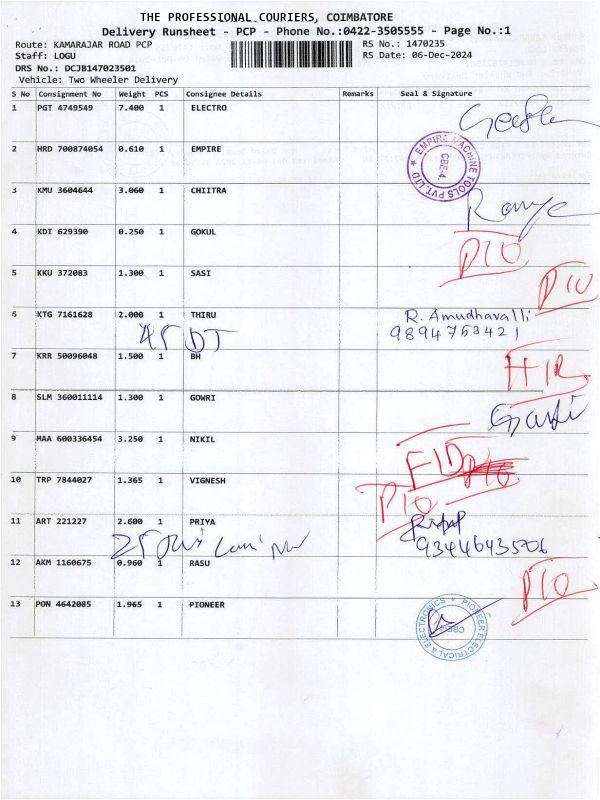 THE PROFESSIONAL COURIERS, COIMBATORE
Delivery Runsheet - PCP - Phone No.:0422-3505555 - Page No.:1
Route: KAMARAJAR ROAD PCP RS No.: 1470235
Staff: LOGU RS Date: 06-Dec-2024
DRS No.: DCJB147023501
Vehicle: Two Wheeler Delivery
S No Consignment No Weight PCS Consignee Details Remarks Seal & Signature
1 PGT 4749549 7.400 1 ELECTRO
2 HRD 700874054 0.610 1 EMPIRE
EMPIRE MACHINE TOOLS PVT. LTD * CBE-4
3 KMU 3604644 3.060 1 CHIITRA
4 KDI 629390 0.250 1 GOKUL PIO
5 KKU 372083 1.300 1 SASI PIO
6 KTG 7161628 2.000 1 THIRU R. Amudhavalli
9894753421
7 KRR 50096048 1.500 1 BH HIR
8 SLM 360011114 1.300 1 GOWRI
9 MAA 600336454 3.250 1 NIKIL FID
10 TRP 7844027 1.365 1 VIGNESH PIO
11 ART 221227 2.600 1 PRIYA
9344643506
12 AKM 1160675 0.960 1 RASU PIO
13 PON 4642085 1.965 1 PIONEER
* PIONEER ELECTRICAL & ELECTRONICS